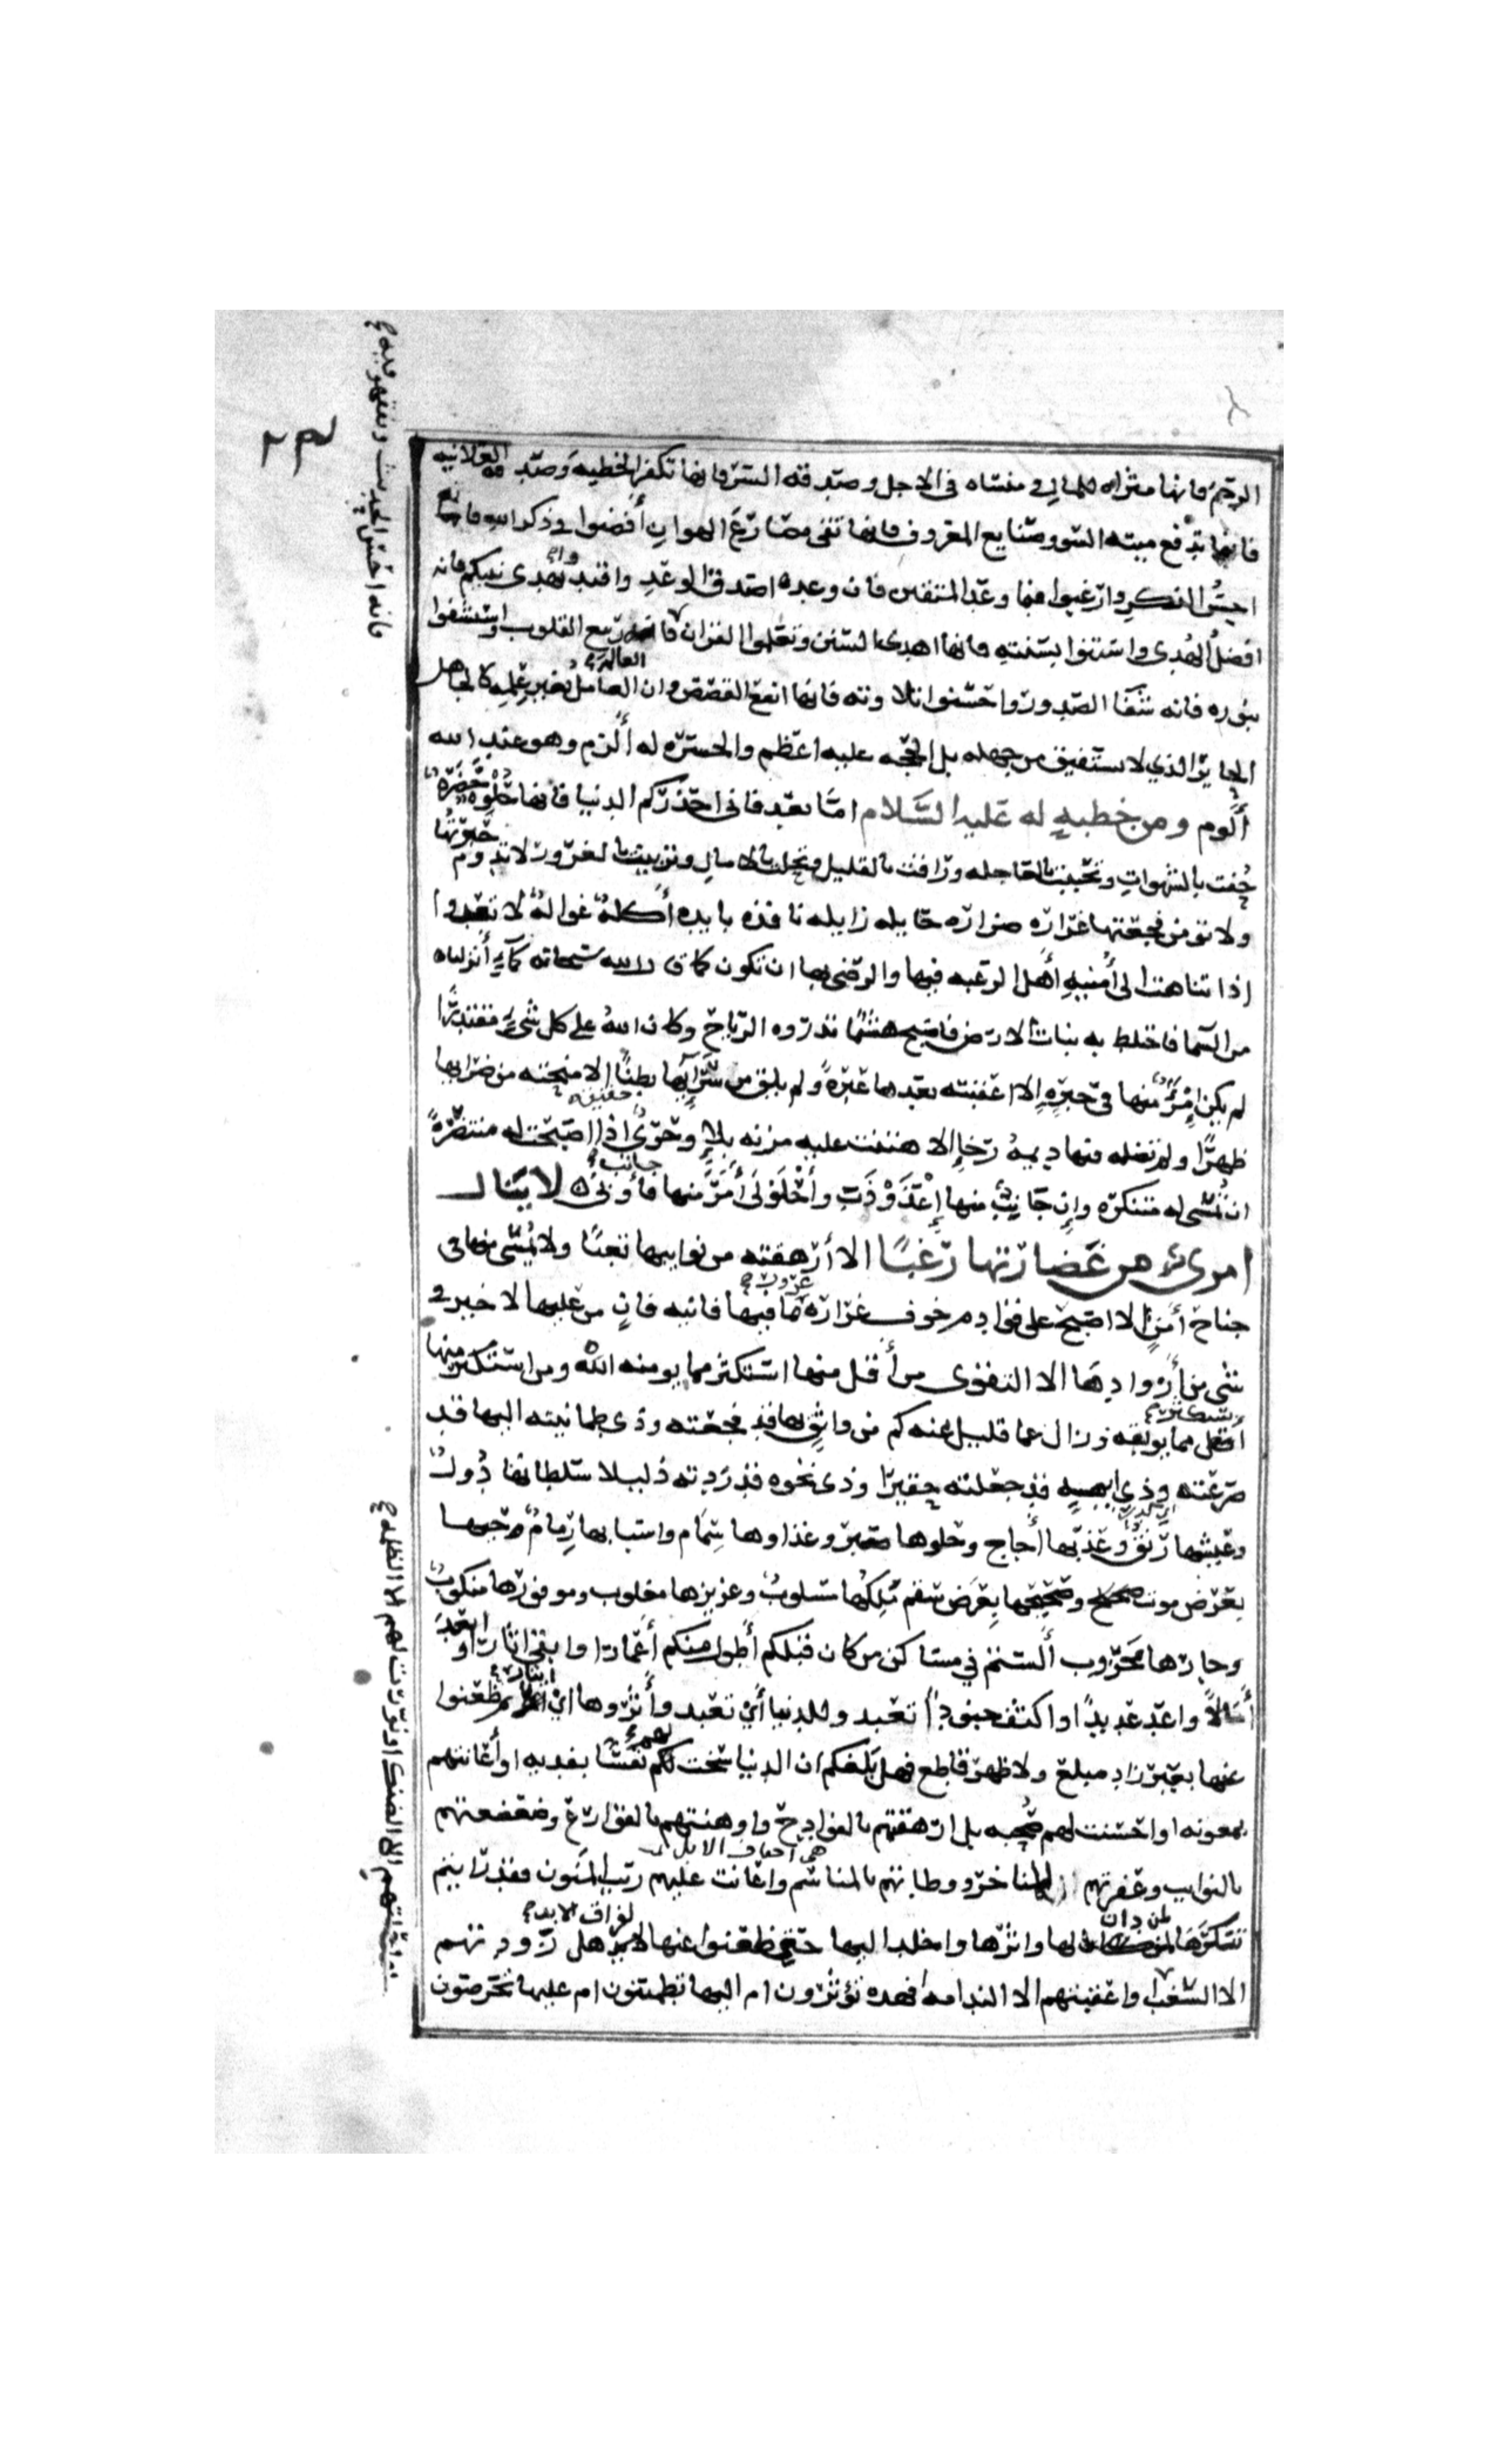 الرحم فانها مثراه للمال و منساه فى الاجل وصدقه السر فانها تكفر الخطيه وصدقه العلانيه
فانها تدفع ميته السو وصنايع المعروف فانها تقى مصارع الهوان أفضوا فى ذكر الله فانه
احسن الذكر وارغبوا فيما وعد المتقين فان وعده اصدق الوعد واقتدوا بهدى نبيكم فانه
افضل الهدى واستنوا بسنته فانها اهدى السنن وتعلموا القران فانه ربيع القلوب واستشفوا
بنوره فانه شفا الصدور واحسنوا تلاوته فانها انفع القصص وان العالم العامل بغير علمه كالجاهل
الحاير الذي لا يستفيق من جهله بل الحجه عليه اعظم والحسره له ألزم وهو عند الله
ألوم ومن خطبه له عليه السلام امّا بعد فانى احذركم الدنيا فانها حلوه خضره
حُفت بالشهوات وتحببت بالعاجله وراقت بالقليل وتحلت بالامال وتزينت بالغرور لا تدوم حبرتها
ولا تومن فجعتها غراره ضراره حايله زايله نافذه بايده أكله غواله لا تعدوا
اذا تناهت الى أمنيه أهل الرغبه فيها والرضى بها ان تكون كما قال الله سبحانه كمآءٍ أنزلناه
من السما فاختلط به نبات الارض فاصبح هشيما تذروه الرياح وكان الله على كل شىء مقتدرًا
لم يكن امرؤٌ منها فى حبرهٍ إلا اعقبته بعدها عبرهً ولم يلق من سرآيها بطنًا الا منحته من ضرايها
ظهرًا ولم تطله فيها ديمهُ رخاءٍ الا هتنت عليه مزنه بلاءٍ وحرىٌ اذا اصبحت له منتصرهً
ان تُمسى له متنكره وإن جانبٌ منها إعْذَوْذَبَ وأحْلَوْلَى أَمَرَّ منها جانب فأوبى لا ينال
امرىءٌ من غضارتها رغبًا الا أرهقته من نوايبها تعبًا ولا يُمسى منها فى
جناح أمنٍ إلا اصبح على قوادم خوف غراره غرور ما فيها فانيه فانٍ من عليها لا خير فى
شى من أزوادها الا التقوى من أقل منها استكثر مما يومنه الله ومن استكثر منها
استكثر مما يوبقه وزال عما قليل عنه كم من واثق بها قد فجعته وذى طمانينه اليها قد
صرعته وذى ابهه قد جعلته حقيرًا وذى نخوه قد ردته ذليلا سلطانها دُول
وعيشها رنق وعذبها أجاج وحلوها صبر وغذاوها سِمام واسبابها رِمامٌ حيها
بعرض موت وصحيحها بعَرَض سقم مُلكها مسلوب وعزيزها مغلوب وموفورها منكوب
وجارها محروب ألستم في مساكن من كان قبلكم أطول منكم أعمارا وابقى اثارا وابعد
أمالًا واعد عديدًا واكثف جنودا تعبدوا للدنيا أىّ تعبد وأثروها اىّ ايثار ثم ظعنوا
عنها بغير زاد مبلغ ولا ظهر قاطع فهل بلغكم ان الدنيا سخت لهم نفسًا بفديه او أعانتهم
بمعونه او احسنت لهم صُحبه بل ارهقتهم بالفوادح واوهنتهم بالقوارع وضعضعتهم
بالنوايب وعفرتهم للمناخر ووطيتهم بالمناسم واعانت عليهم ريب المنون فقد رايتم
تنكرها لمن دان لها واثرها واخلد اليها حتى ظعنوا عنها لفراق الابد هل زودتهم
الا السغب او اعقبتهم الا الندامه افهذه تؤثرون ام اليها تطمئنون ام عليها تحرصون
فانه احسن الحديث وتفقهوا فيه
او احلتهم الا الضنك او نورت لهم الا الظلمه